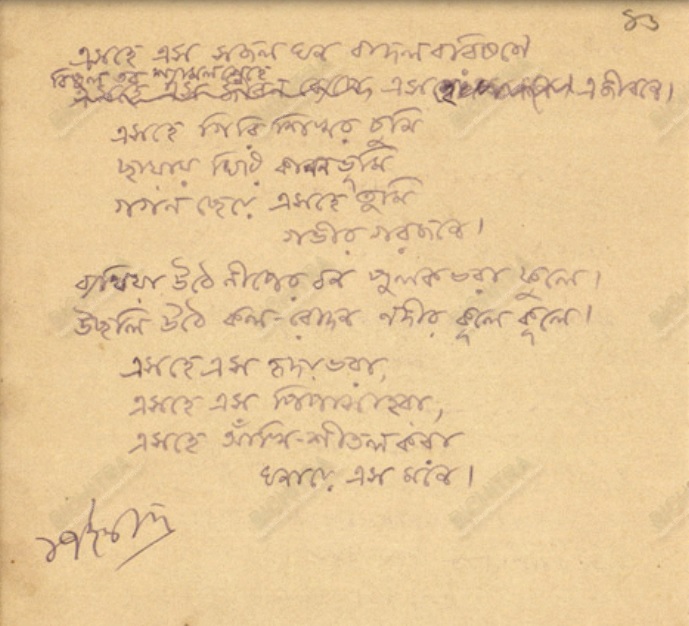 ৪১
এসহে এস সজল ঘন বাদল বরিষণে
বিপুল তব শ্যামল স্নেহে
এসহে এস জীবন এসহে এ জীবনে।
এসহে গিরি শিখর চুমি
ছায়ায় ঘিরি কাননভূমি
গগন ছেয়ে এসহে তুমি
গভীর গরজনে।
ব্যথিয়া উঠে নীপের বন পুলক ভরা ফুলে।
উছলি উঠে কল-রোদন নদীর কূলে কূলে।
এসহে এস হৃদয়ভরা,
এসহে এস পিপাসাহরা,
এসহে আঁখি-শীতলকরা
ঘনায়ে এস মনে।